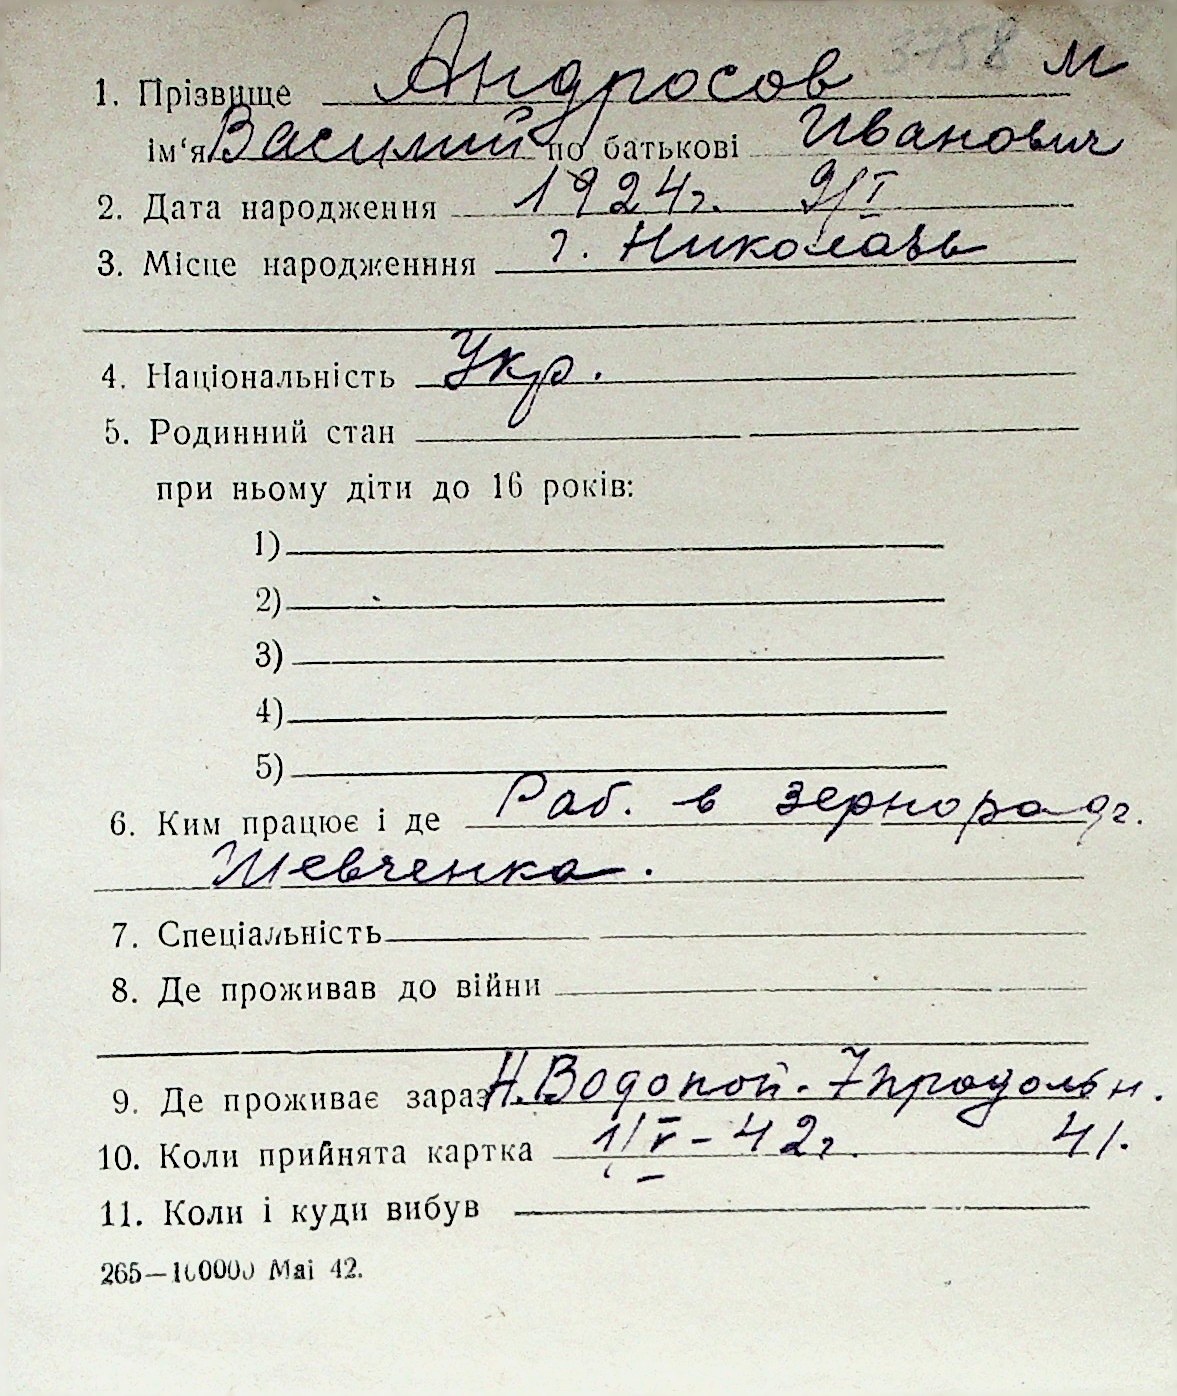 3758 м
1. Прізвище Андросов
ім‘я Василий по батькові Иванович
2. Дата народження 1924г. 9/I
3. Місце народженння г. Николаевь
4. Національність Укр.
5. Родинний стан
при ньому діти до 16 років:
1)
2)
3)
4)
5)
6. Ким працює і де Раб. в зернорадг.
Шевченка.
7. Спеціальність
8. Де проживав до війни
9. Де проживає зараз Н. Водопой. 7 продольн.
10. Коли прийнята картка 1/V - 42г. 41.
11. Коли і куди вибув
265—100000 Mai 42.